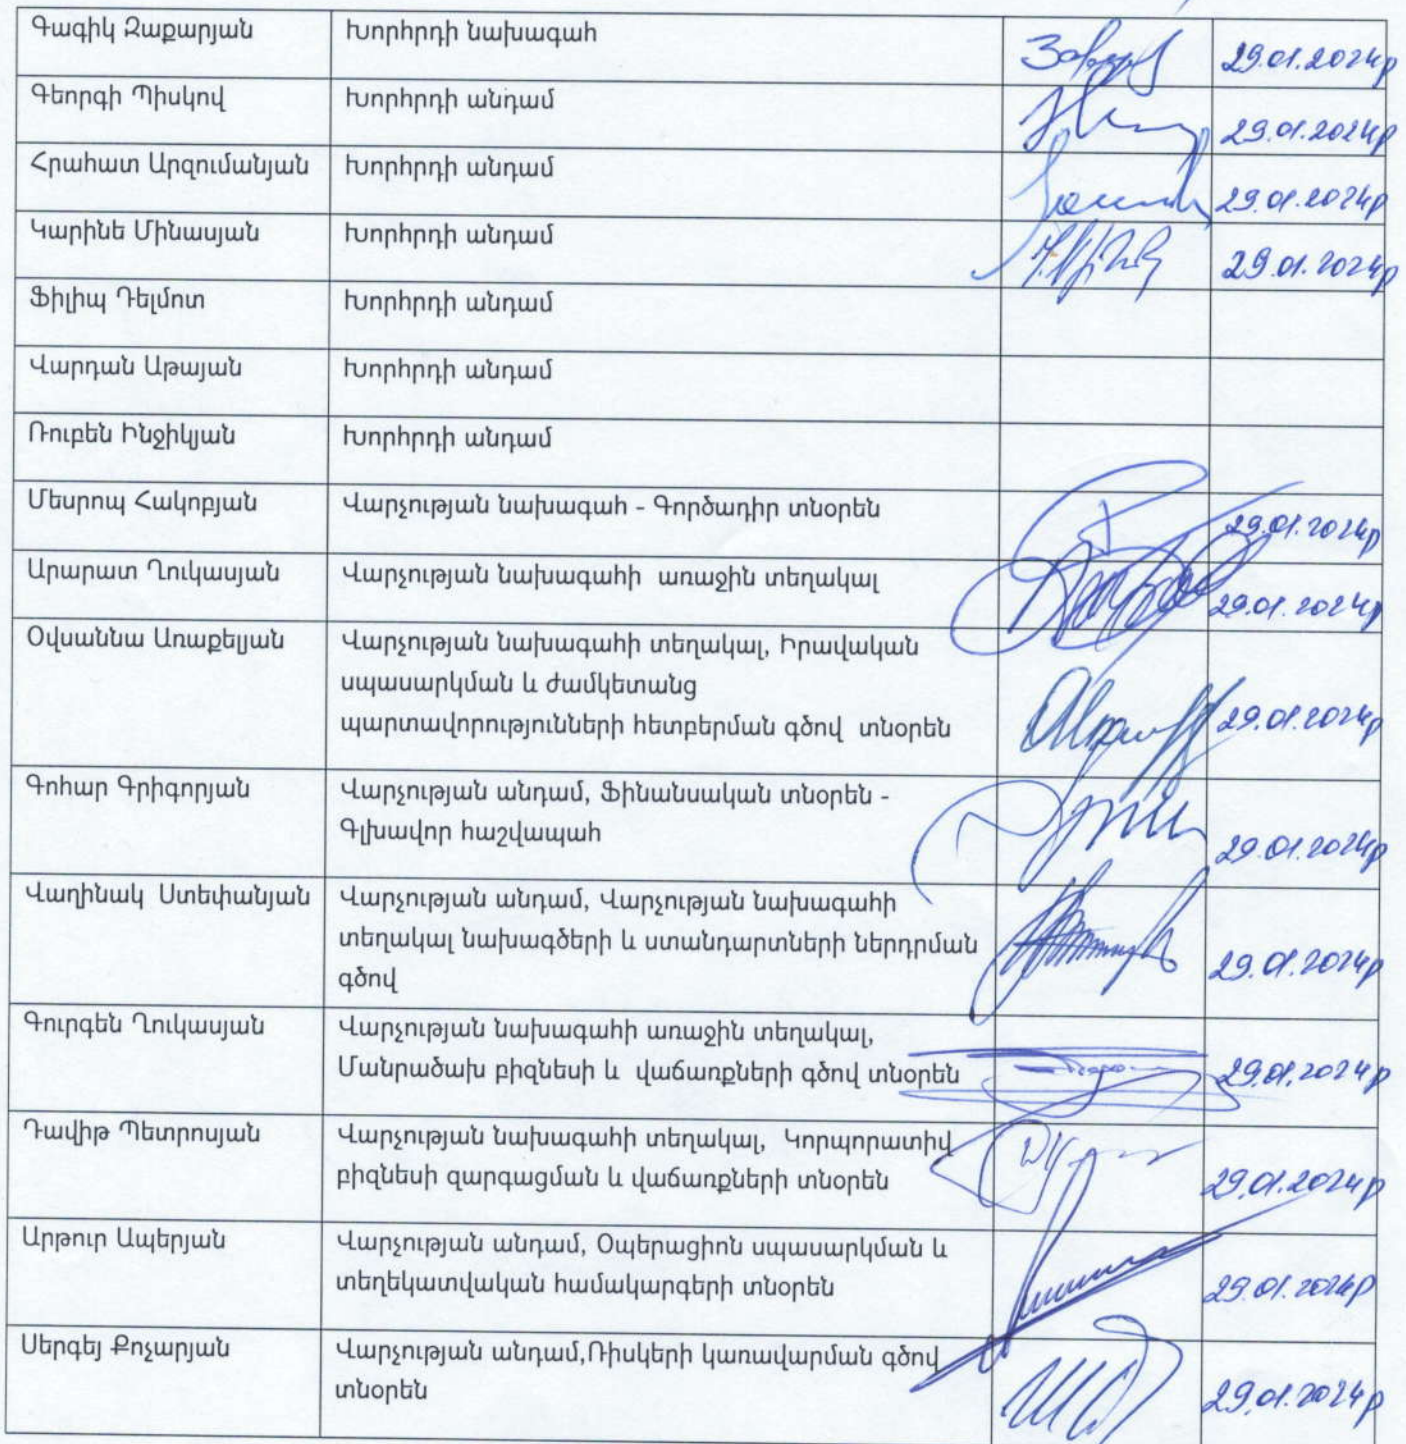 Գագիկ Զաքարյան Խորհրդի նախագահ 29.01.2024թ
Գեորգի Պիսկով Խորհրդի անդամ 29.01.2024թ
Հրահատ Արզումանյան Խորհրդի անդամ 29.01.2024թ
Կարինե Մինասյան Խորհրդի անդամ 29.01.2024թ
Ֆիլիպ Դելմոտ Խորհրդի անդամ
Վարդան Աթայան Խորհրդի անդամ
Ռուբեն Ինջիկյան Խորհրդի անդամ
Մեսրոպ Հակոբյան Վարչության նախագահ - Գործադիր տնօրեն 29.01.2024թ
Արարատ Ղուկասյան Վարչության նախագահի առաջին տեղակալ 29.01.2024թ
Օվսաննա Առաքելյան Վարչության նախագահի տեղակալ, Իրավական
սպասարկման և ժամկետանց
պարտավորությունների հետբերման գծով տնօրեն 29.01.2024թ
Գոհար Գրիգորյան Վարչության անդամ, Ֆինանսական տնօրեն -
Գլխավոր հաշվապահ 29.01.2024թ
Վաղինակ Ստեփանյան Վարչության անդամ, Վարչության նախագահի
տեղակալ նախագծերի և ստանդարտների ներդրման
գծով 29.01.2024թ
Գուրգեն Ղուկասյան Վարչության նախագահի առաջին տեղակալ,
Մանրածախ բիզնեսի և վաճառքների գծով տնօրեն 29.01.2024թ
Դավիթ Պետրոսյան Վարչության նախագահի տեղակալ, Կորպորատիվ
բիզնեսի զարգացման և վաճառքների տնօրեն 29.01.2024թ
Արթուր Ապերյան Վարչության անդամ, Օպերացիոն սպասարկման և
տեղեկատվական համակարգերի տնօրեն 29.01.2024թ
Սերգեյ Քոչարյան Վարչության անդամ,Ռիսկերի կառավարման գծով
տնօրեն 29.01.2024թ